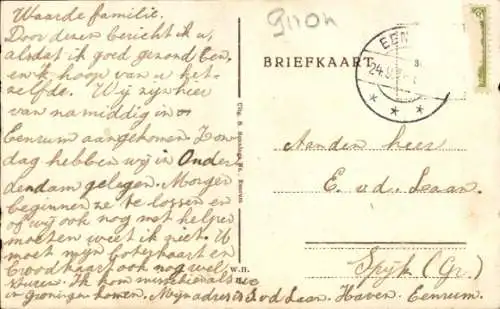 Waarde familie.
Door dezen bericht ik u,
alsdat ik goed gezond ben,
en ik hoop van u het-
zelfde. Wij zijn hier
van namiddig in
Eenrum aangekomen. Zon
dag hebben wij in Onder
dendam gelegen. Morgen
beginnen ze te lossen en
of wij ook nog met helpen
moeten weet ik niet. U
moet mijn Boterkaart en
Broodkaart ook nog wel
sturen. Ik kom misschien als we
in Groningen komen. Mijn adres is J. v d Laan. Haven. Eenrum.
Gron
EEN
24.9
BRIEFKAART
Uitg. Eenrum
w.n.
Aan den heer
E. v.d. Laan.
Spijk (Gr.)